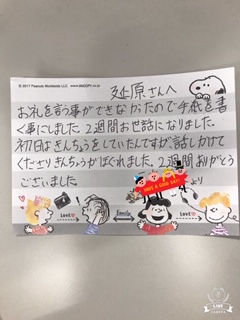 © 2017 Peanuts Worldwide LLC www.SNOOPY.co.jp
延原さんへ
お礼を言う事ができなかったので手紙を書
く事にしました。2週間お世話になりました。
初日はきんちょうをしていたんですが話しかけて
くださりきんちょうがほぐれました。2週間ありがとう
ございました。
HAVE A GOOD DAY!
より
Love
Family
Love
LINE